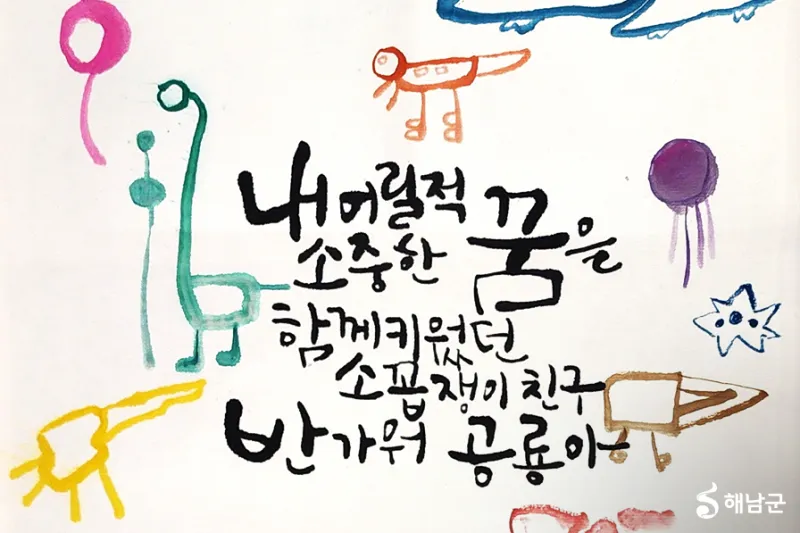 내 어릴적
소중한 꿈을
함께 키웠던
소꿉쟁이 친구
반가워 공룡아
해남군